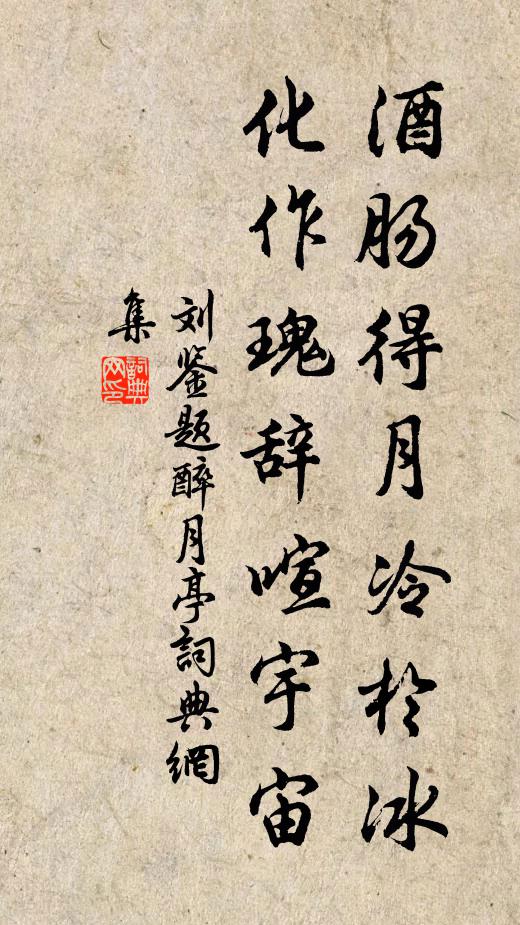 酒肠得月冷於冰
化作瑰辞喧宇宙
刘鉴题醉月亭詞典網
集
詞典
网印